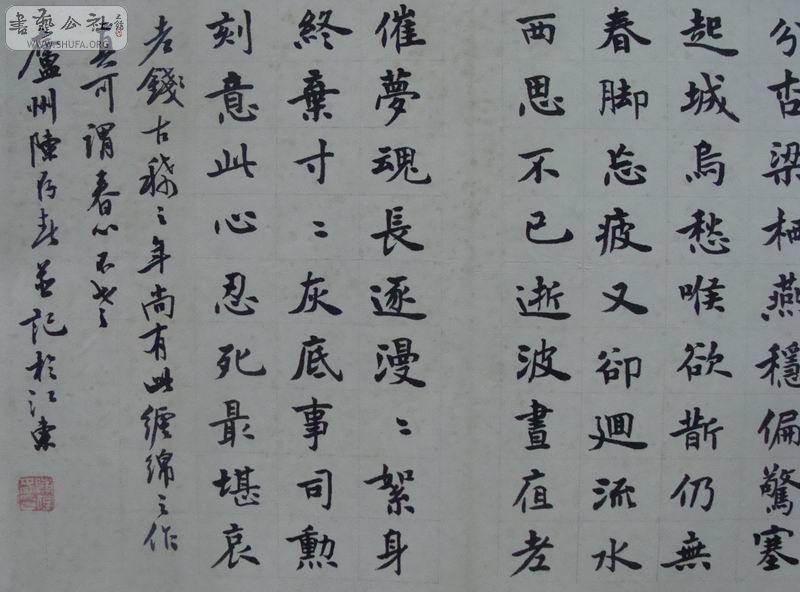 分杏梁栖燕穩偏驚塞
起城烏愁喉欲斮仍無
春脚忘疲又卻迴流水
西思不已逝波晝夜老
催夢魂長逐漫〻絮身
終棄寸〻灰底事司勳
刻意此心忍死最堪哀
老錢古稀之年尚有此纏綿之作
真可謂春心不老
廬州陳
並記於江東
書藝公社
WWW.SHUFA.ORG